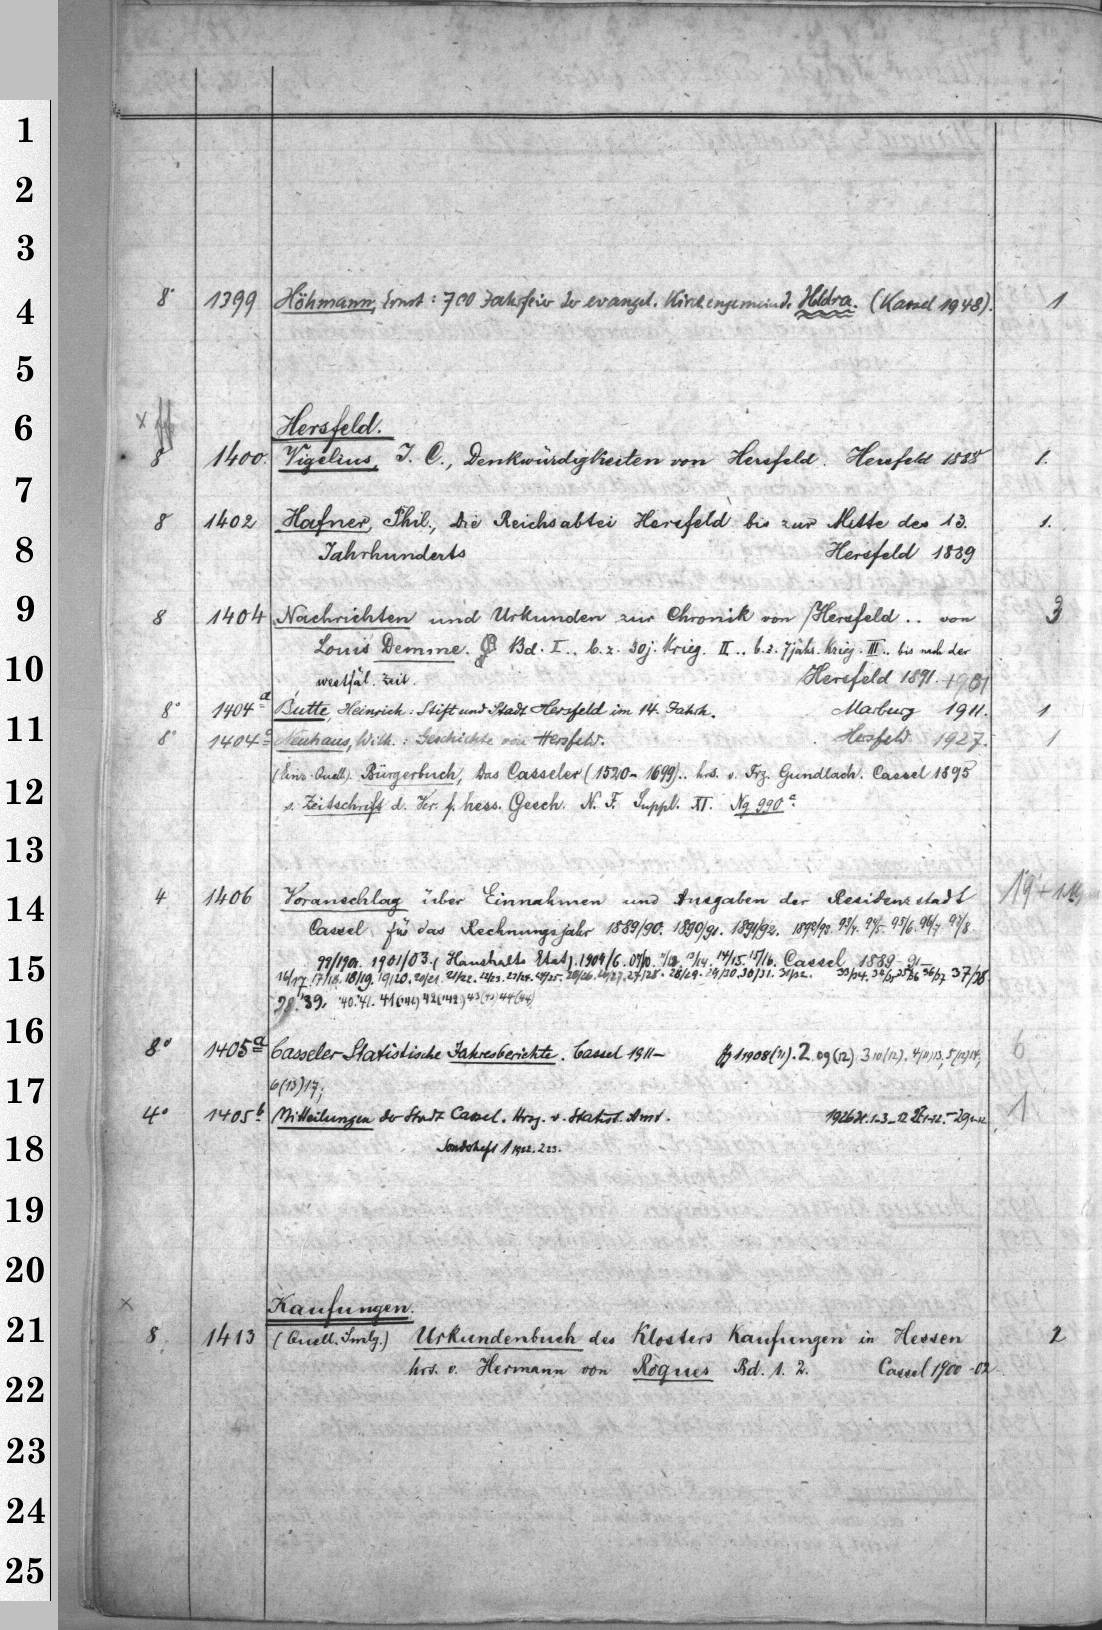 1
2
3
4
5
6
7
8
9
10
11
12
13
14
15
16
17
18
19
20
21
22
23
24
25
8° 1399 Höhmann, Ernst: 700 Jahrfeier der evangel. Kirchengemeinde Heldra. (Kassel 1948). 1
Hersfeld.
8 1400. Vigelius, J. C., Denkwürdigkeiten von Hersfeld. Hersfeld 1888 1.
8 1402 Hafner, Phil., Die Reichsabtei Hersfeld bis zur Mitte des 13. 1.
Jahrhunderts Hersfeld 1889
8 1404 Nachrichten und Urkunden zur Chronik von Hersfeld .. von 3
Louis Demme. Bd. I.. b. z. 30j. Krieg. II.. b. z. 7jähr. Krieg. III.. bis nach der
westfäl. Zeit. Hersfeld 1891-1901
8° 1404 a Butte, Heinrich: Stift und Stadt Hersfeld im 14. Jahrh. Marburg 1911. 1
8° 1404 Neuhaus, Wilh.: Geschichte von Hersfeld. Hersfeld 1927. 1
Bürgerbuch, Das Casseler (1520-1699).. hrs. v. Frz. Gundlach. Cassel 1895
s. Zeitschrift d. Ver. f. hess. Gesch. N. F. Suppl. XI. Ng 990 a.
4 1406 Voranschlag über Einnahmen und Ausgaben der Residenzstadt 19
Cassel für das Rechnungsjahr 1889/90. 1890/91. 1891/92. 1892/93. 93/4. 94/5. 95/6. 96/7 97/8
99/1900. 1901/03. (Haushalts Etat). 1904/6. 14/15. 15/16. Cassel 1889-91-
16/17. 17/18. 18/19. 19/20. 20/21. 21/22. 22/23. 23/24. 24/25. 27/28. 28/29. 29/30. 30/31. 31/32. 33/34. 36/37 37/38
38. 39.
8° 1405 a Casseler Statistische Jahresberichte. Cassel 1911- 1 1908(11). 2. 09(12) 3 10(12). 6
6(13)17;
4° 1405 b Mitteilungen der Stadt Cassel. Hrsg. v. Statist. Amt. 1
Sonderheft 1 1922. 2 23.
Kaufungen.
8. 1413 (Quell. Smlg.) Urkundenbuch des Klosters Kaufungen in Hessen 2
hrs. v. Hermann von Roques Bd. 1. 2. Cassel 1900-02